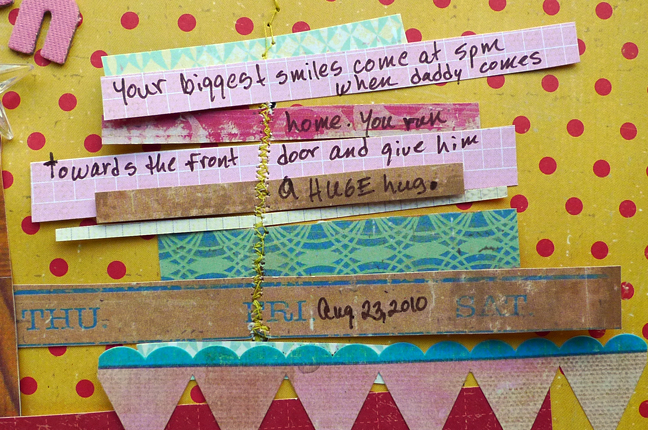 Your biggest smiles come at 5pm
when daddy comes
home. You run
towards the front door and give him
a HUGE hug.
THU. FRI Aug 23, 2010 SAT.